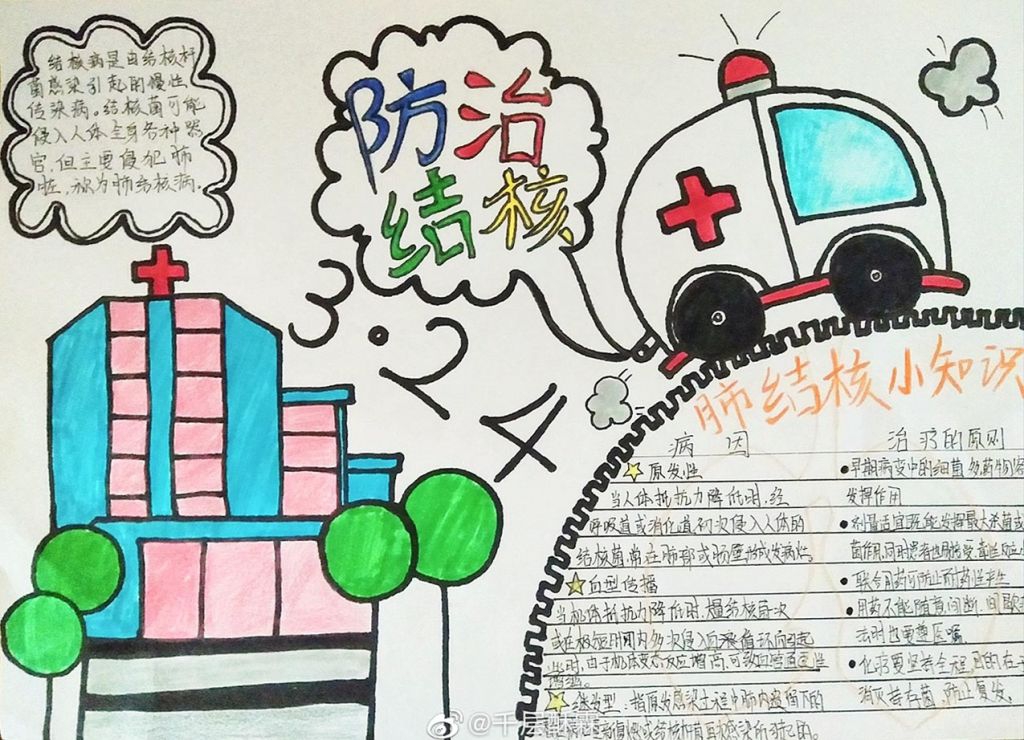 结核病是由结核杆
菌感染引起的慢性
传染病。结核菌可能
侵入人体全身各种器
官,但主要侵犯肺
脏,称为肺结核病.
防治
结核
3.24
肺结核小知识
病因
原发性
当人体抵抗力降低时,经
呼吸道或消化道初次侵入人体的
结核菌,常在肺部或肠壁形成发病灶
血型传播
当机体抵抗力降低时,量结核
或在极短时间内多次侵入血液循环而引起
此时,由于机体变态反应增高,可致血管通透性
增强。
继发型:指原发感染过程中肺内遗留下的
治疗的原则
早期病变中的细菌多,药物容
发挥作用
剂量适宜既能发挥最大杀菌或
菌作用,同时患者也易接受,毒性反应
联合用药可防止耐药性产生
用药不能随意间断,间歇
法时也要遵医嘱
化疗要坚持全程,目的在
消灭持存菌,防止复发.
@千层酥